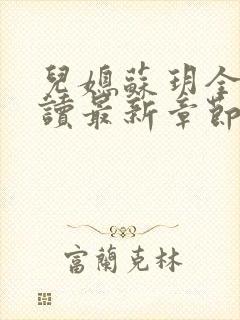 兒媳蘇玥全
讀最新章節
富蘭克林